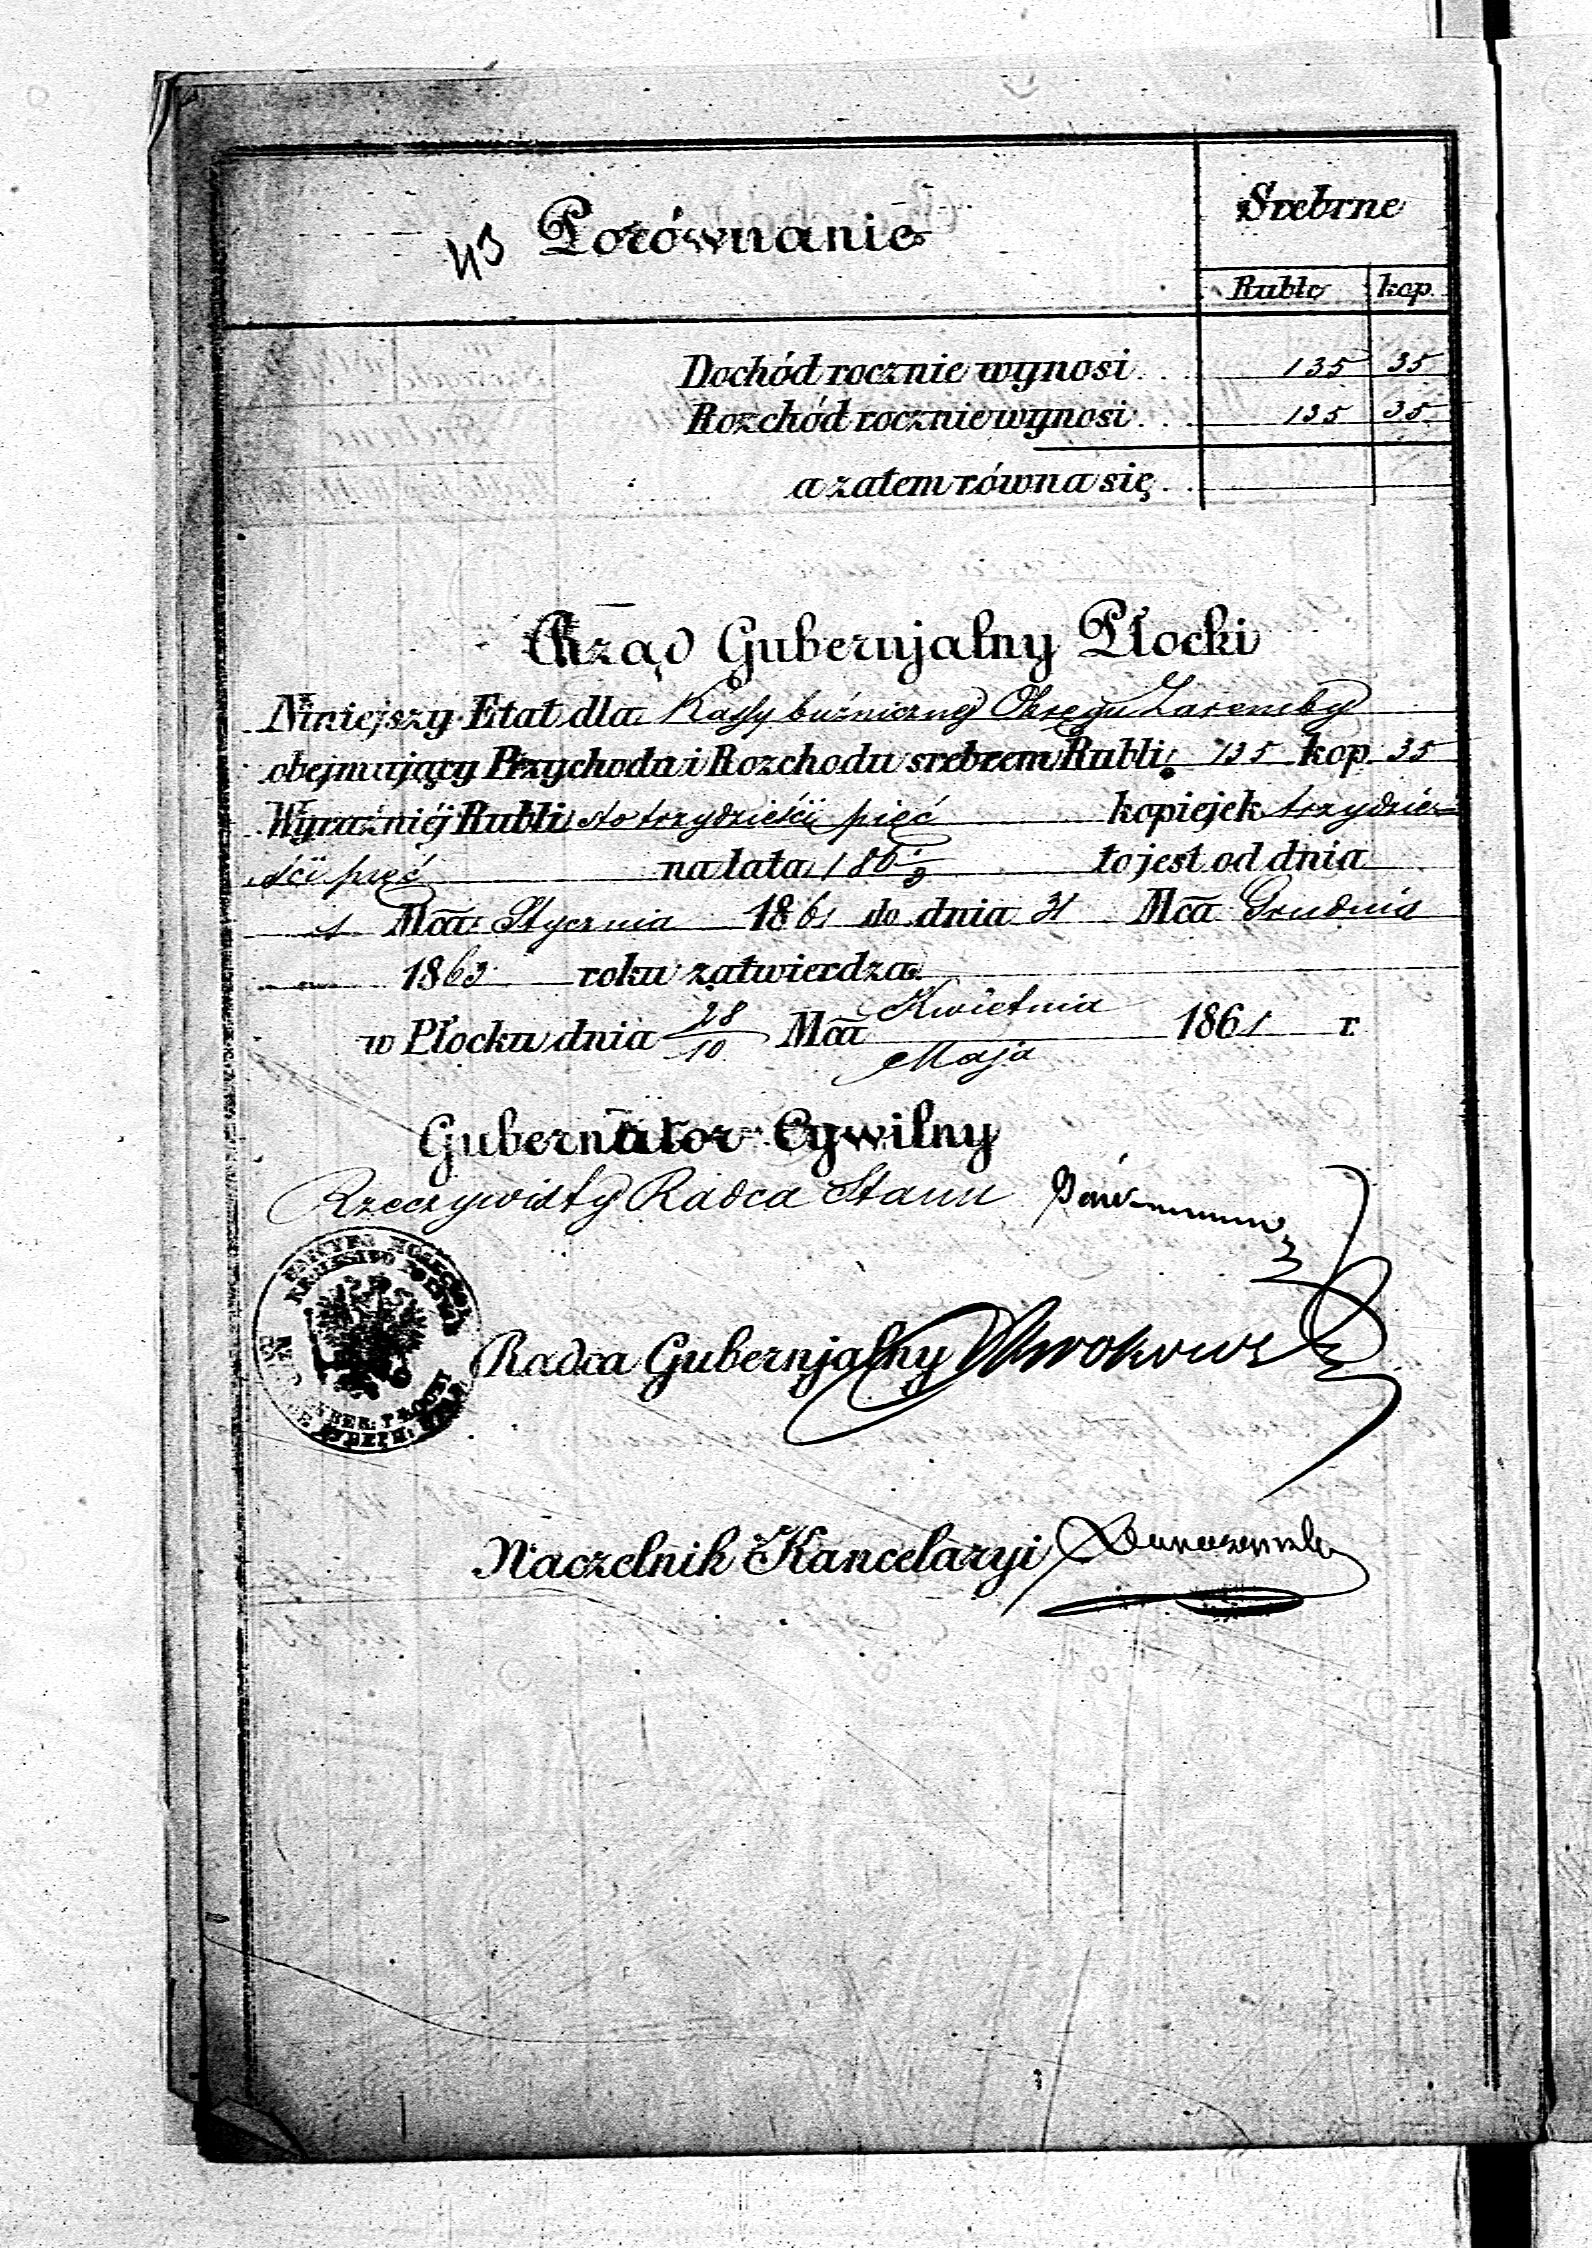 43 Porównanie
Srebrne
Ruble kop.
Dochód rocznie wynosi . . 135 35
Rozchód rocznie wynosi . . 135 35
a zatem równa się . .
Rząd Gubernjalny Płocki
Niniejszy Etat dla Kassy bużnicznej Okręgu Zaremby
obejmujący Przychodu i Rozchodu srebrem Rubli 135 kop 35
Wyraźniéj Rubli sto trzydzieści pięć kopiejek trzydzie-
ści pięć na lata 186 1/3 to jest od dnia
1 Mca Stycznia 1861 do dnia 31 Mca Grudnia
1863 roku zatwierdza
w Płocku dnia 28/10 Mca Kwietnia/Maja 1861 r
Gubernator Cywilny
Rzeczywisty Radca Stanu
Radca Gubernjalny
Naczelnik Kancelaryi